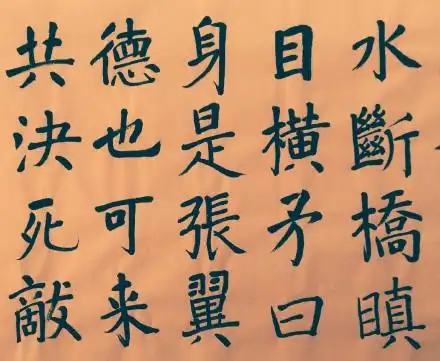 水斷橋瞋
目橫矛曰
身是張翼
德也可来
共決死敵